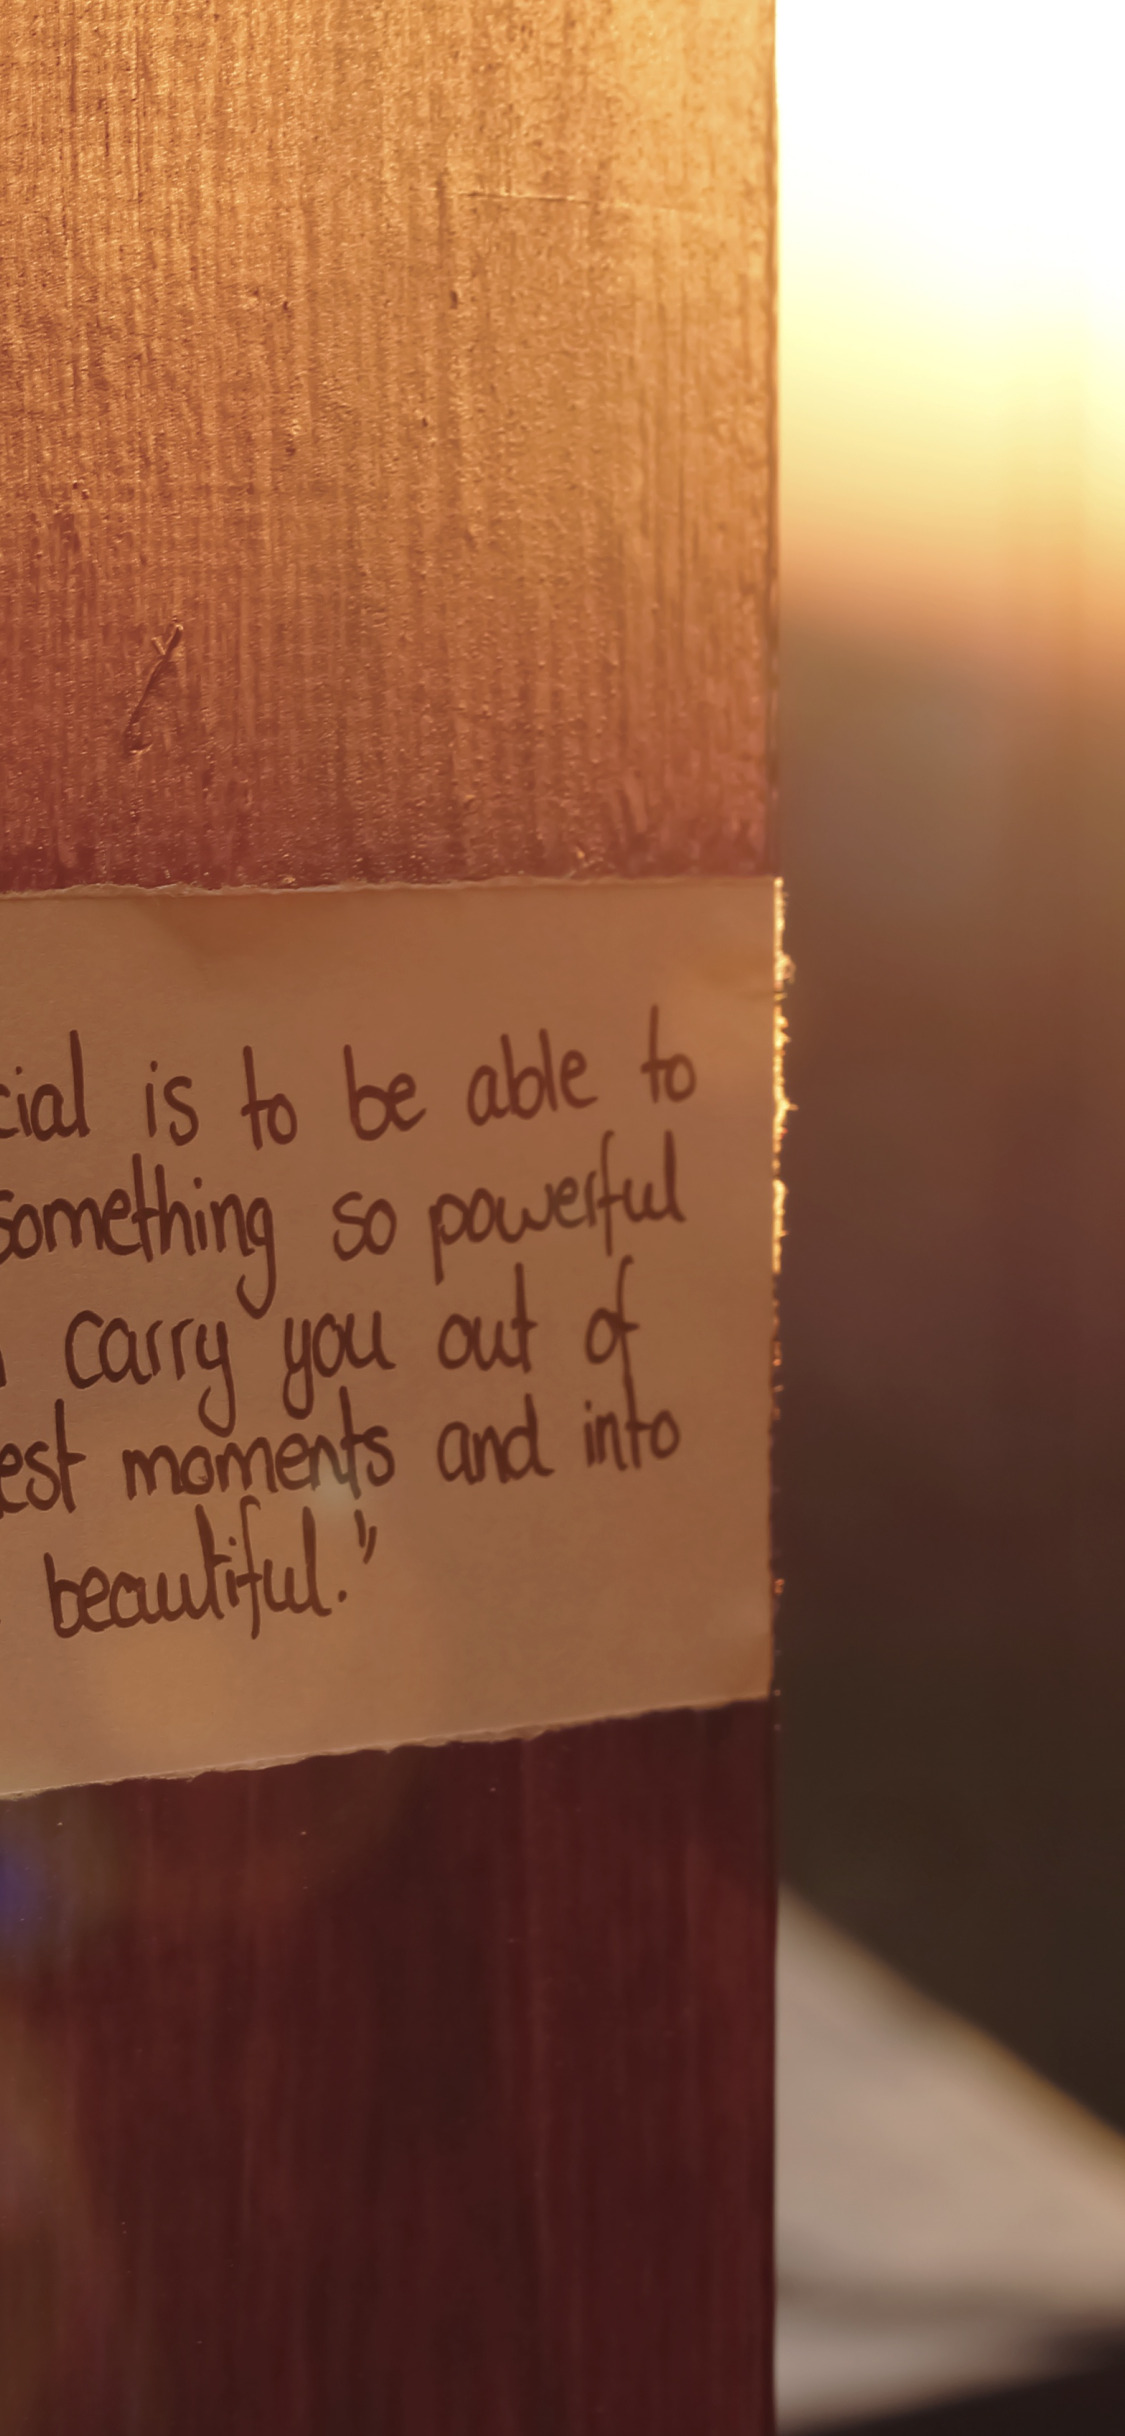 cial is to be able to
something so powerful
carry you out of
est moments and into
beautiful."